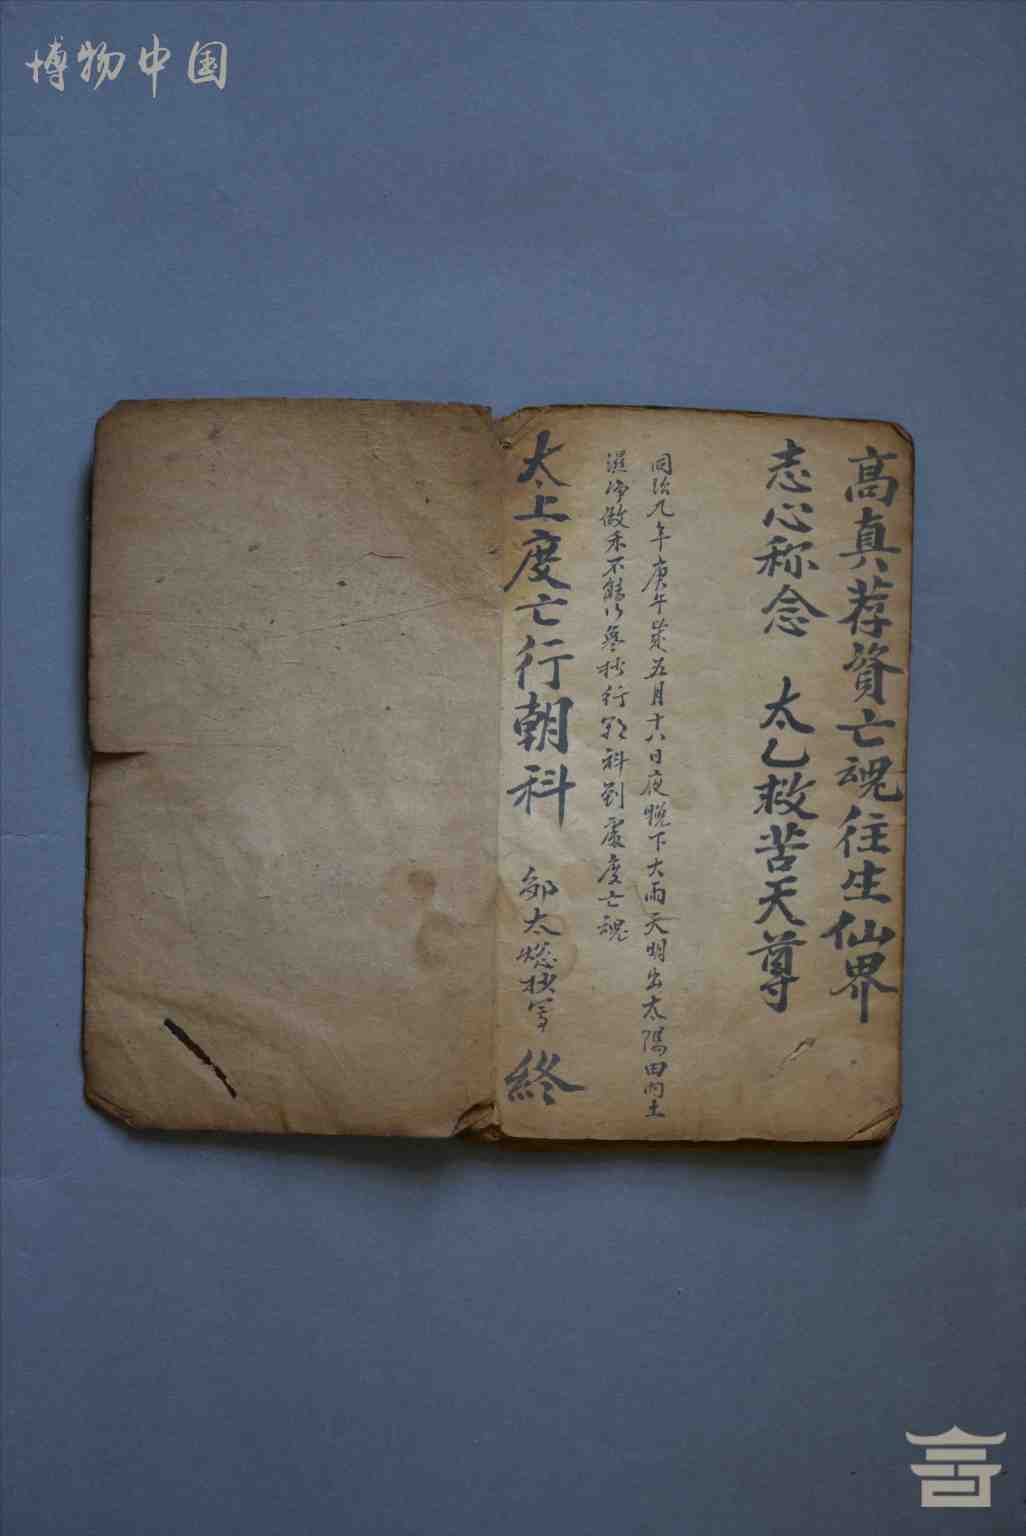 博物中国
高真荐資亡魂往生仙界
志心称念 太乙救苦天尊
同治九年庚午嵗五月十八日夜晚下大雨天明出太陽田内土
濕 做禾不能 行 科到處度亡魂
太上度亡行朝科 太 終